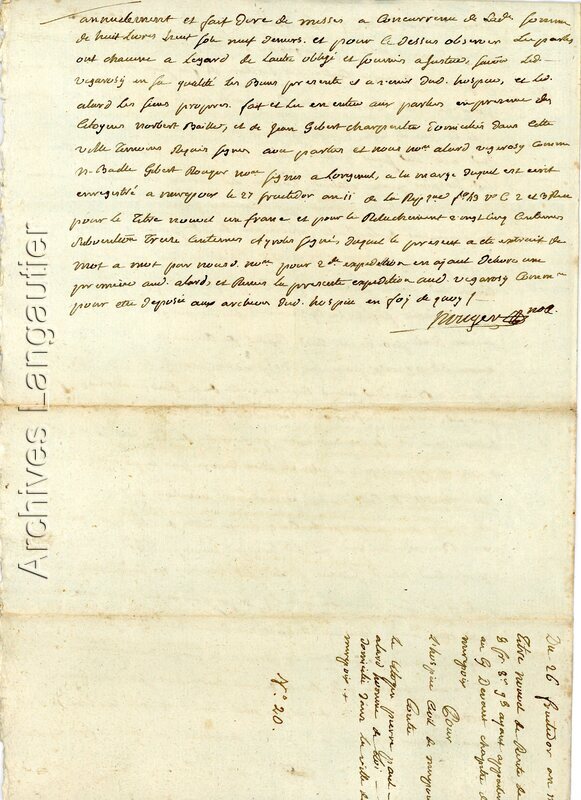 annuelement et fait dire de messes a Concurrence de Lade. somme
de huit Livres huit sols neuf deniers. et pour le dessus observer Les parties
ont chacune a Legard de Lautre obligé et soumis a Justice, savoir Led.
vigarosy en sa qualité les Biens presents et a venir dud. hospice, et Led.
alard les siens propres. fait et Lu en entier aux parties en presence des
Citoyens Norbert Baillet, et de Jean Gibert charpentier domiciliés dans cette
ville temoins Requis signés avec parties et nous no.re alard vigarosy Comm.
N. Baille Gibert Rouger no.re signés a Loriginal, a la marge duquel est ecrit
enregistré a mirepoix le 27 fructidor an 11 de la Rep. f.º 49 v.º C. 2 et 3 Reçu
pour le titre nouvel un franc et pour le vingt cinq centimes
subvention treize centimes signé, duquel le present a été extrait de
mot a mot par nousd. no.re pour 2.de expedition en ajant delivré une
premiere aud. alard, et Remis la presente expedition aud. vigarosy Comm.re
pour etre deposée aux archives dud. hospice en foj de quoy /
Rouger no.re
Du 26 fructidor an
titre nouvel de Rente de
8 fr.
au chapitre de
mirepoix
Pour
L'hospice Civil de mirepoix
Contre
Le Citoyen pierre paul
alard homme de Loi
domicilié dans la ville de
mirepoix
N.º 20.
Archives Langautier